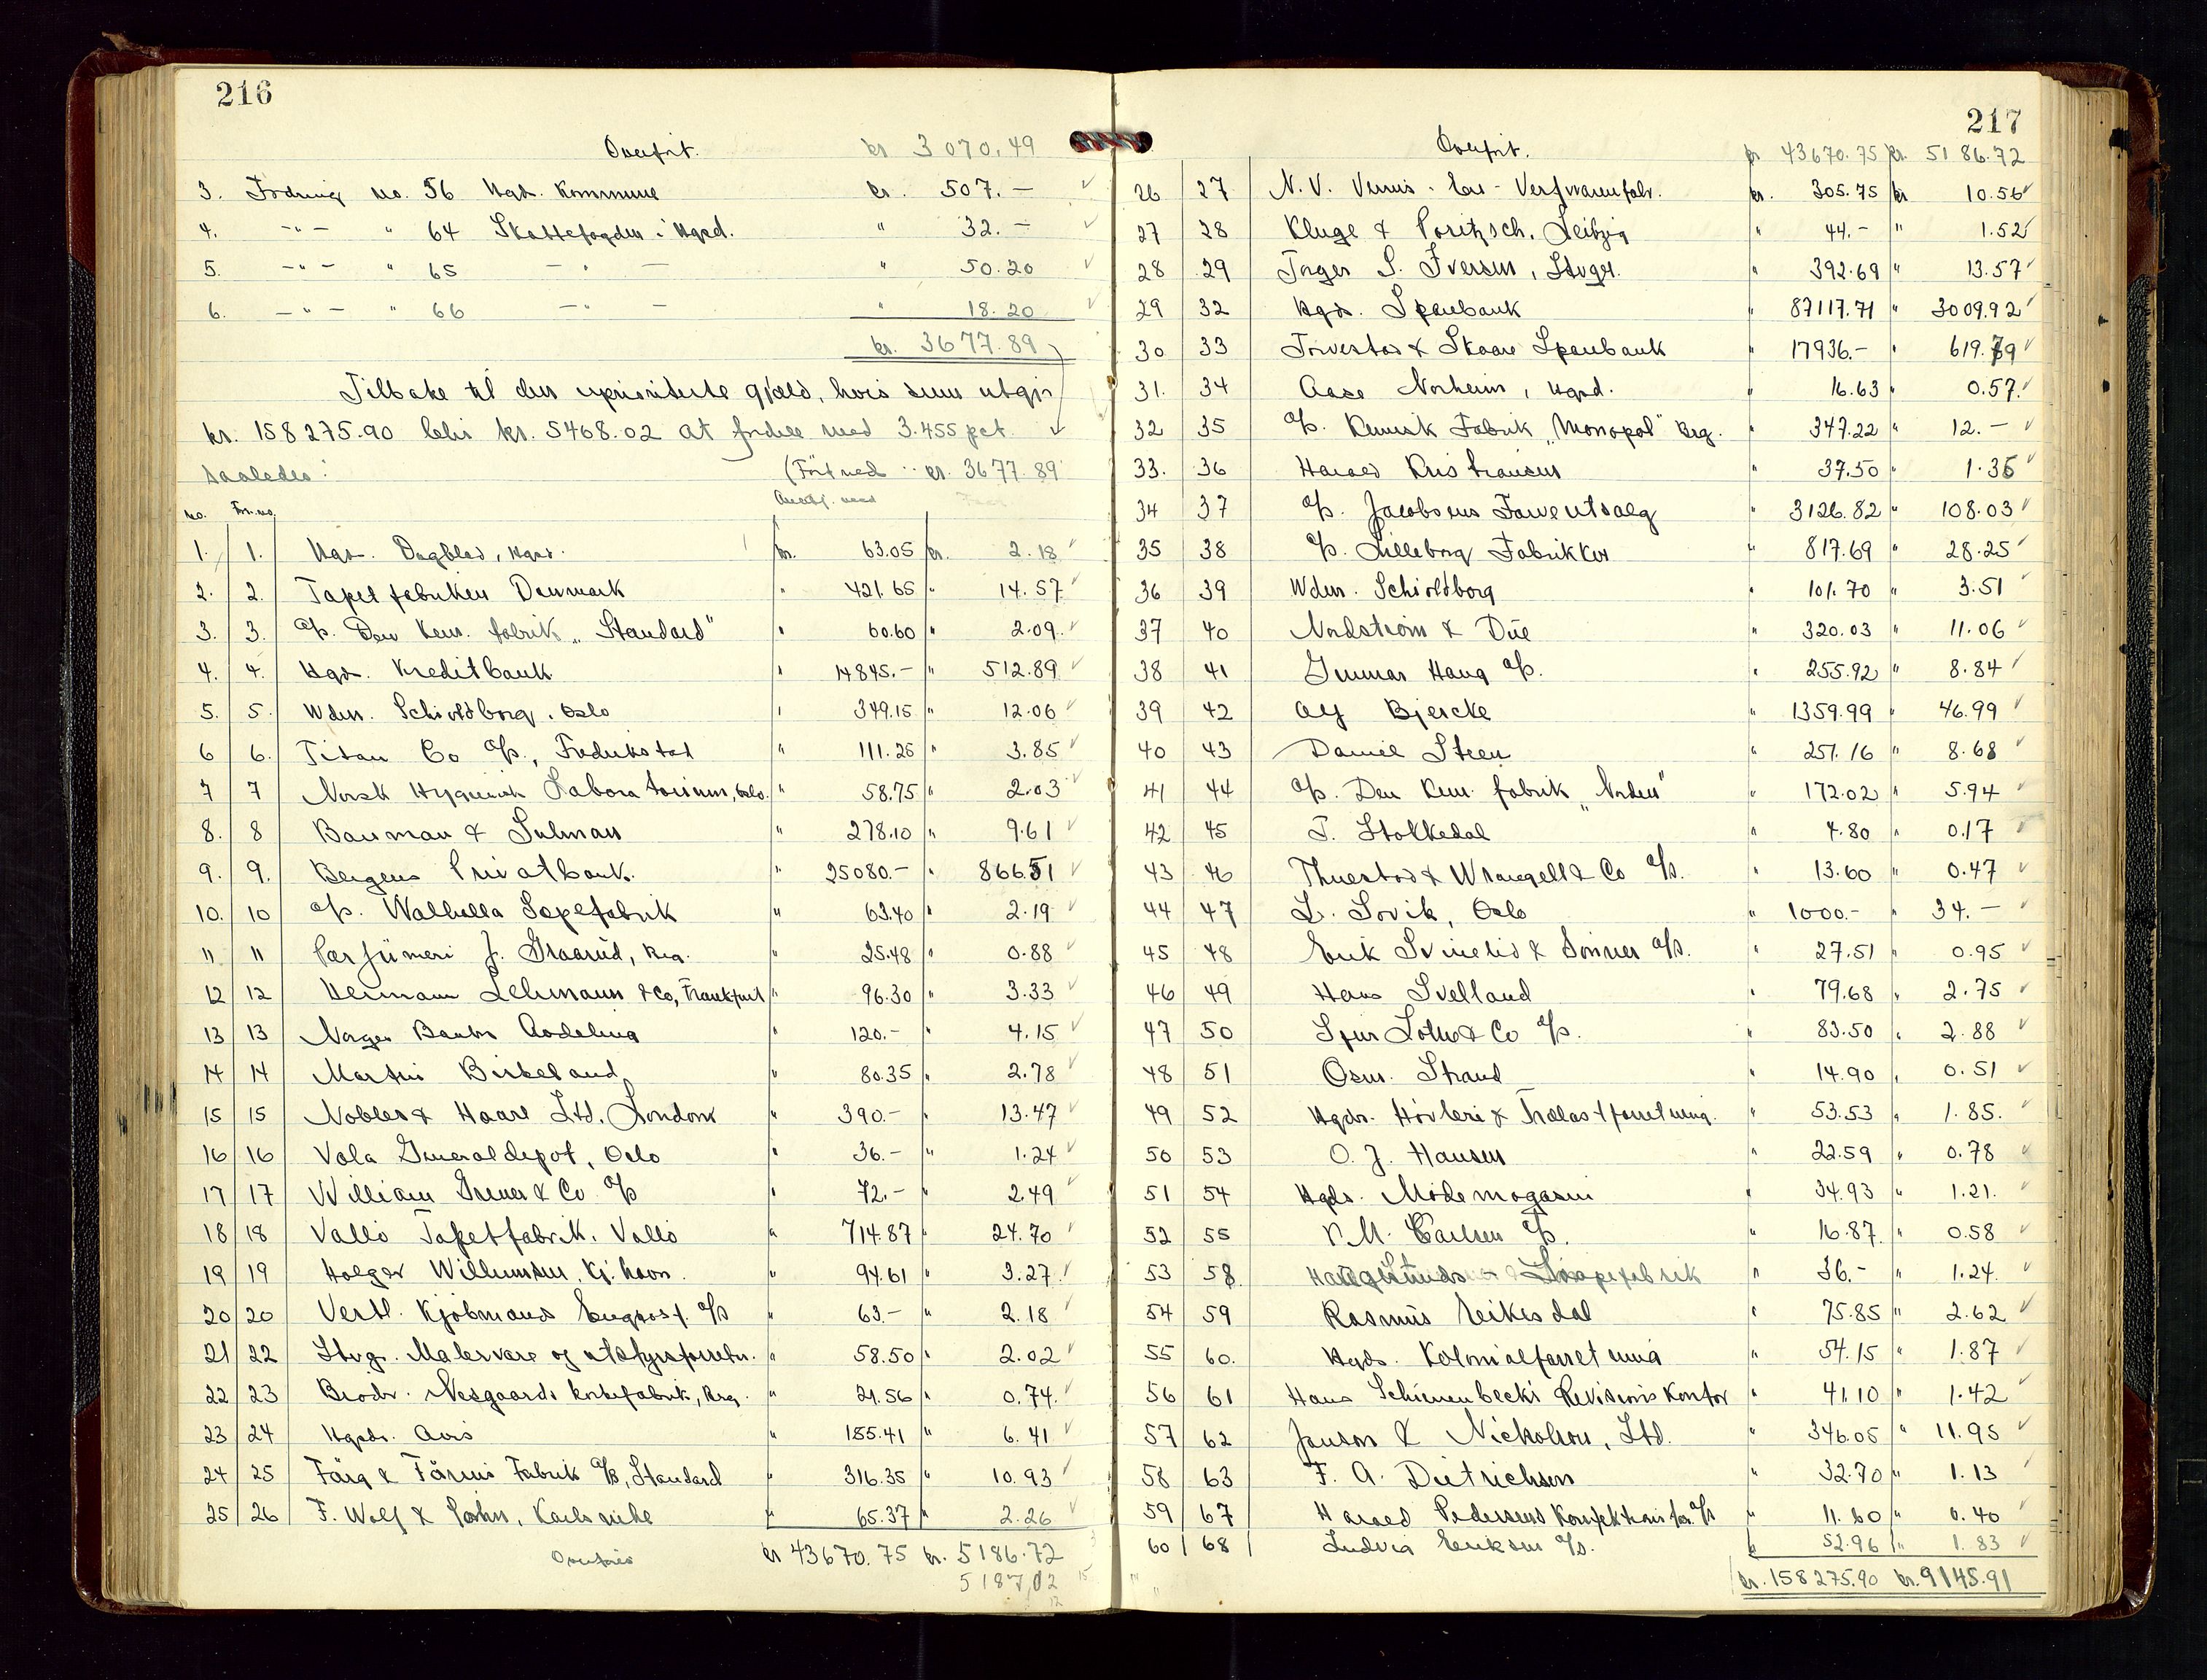 216
Overført. kr 3070.49
3. Fordring no. 56 Hgsd. Kommune kr. 507.—
4. -"- " 64 Skattefogden i Hgsd. " 32.—
5. -"- " 65 -"- " 50.20
6. -"- " 66 -"- " 18.20
kr. 3677.89
Tilbake til den uprioriterte gjæld, hvis sum utgjør
kr. 158275.90 blir kr. 5468.02 at fordele med 3.455 pct.
saaledes: (Ført ned kr. 3677.89
No. For.no. Anmeldt
1. 1. Hgsd. Dagblad, Hgsd. kr. 63.05 kr. 2.18
2. 2. Tapetfabriken Danmark " 421.65 " 14.57
3. 3. A/S. Den kem. fabrik „Standard" " 60.60 " 2.09.
4. 4. Hgsd. Kreditbank " 14845.— " 512.89
5. 5. Wdm. Schioldborg, Oslo " 349.15 " 12.06
6 6. Titan Co A/S., Fredrikstad " 111.25 " 3.85
7 7 Norsk Hygienisk Laboratorium, Oslo. " 58.75 " 2.03
8. 8 Bauman & Sulman " 278.10 " 9.61
9. 9. Bergens Privatbank. " 25080.— " 866.51
10. 10 A/S. Walhalla Sæpefabrik " 63.40 " 2.19
11 11 Parfümeri J. Graarud, Brg. " 25.48 " 0.88
12 12 Herman Lehmann & Co, Frankfurt " 96.30 " 3.33
13 13 Norges Banks Avdeling " 120.— " 4.15
14 14 Martin Birkeland " 80.35 " 2.78
15 15 Nobles & Hoare Ltd. London " 390.— " 13.47
16 16 Vola Generaldepot, Oslo " 36.— " 1.24
17 17 William Grener & Co. A/S " 72.— " 2.49
18 18 Vallø Tapetfabrik. Vallø " 714.87 " 24.70
19 19 Holger Willumsen, Kj.havn. " 94.61 " 3.27.
20 20 Vestl. Kjøbmands Engrosf. A/S " 63.— " 2.18
21 22 Stvgr. Malervare og utstyrsforretn. " 58.50 " 2.02
22 23 Brødr. Nesgaards kostefabrik, Brg. " 21.56 " 0.74.
23 24 Hgsds. Avis " 185.41 " 6.41
24 25 Färg & Färniss Fabrik A/B, Standard " 316.35 " 10.93
25 26 F. Wolf & Sohn, Karlsruhe " 65.37 " 2.26
Overføres kr 43670.75 kr. 5186.72
5187,02
217
Overført. kr 43670.75 kr. 5186.72
26 27 N. V. Vernis- Verfwarenfabr. kr. 305.75 kr 10.56
27 28 Kluge & Poritzsch, Leibzig " 44.— " 1.52
28 29 Inger S. Iversen, Stvgr. " 392.69 " 13.57
29 32 Hgsds. Sparebank " 87117.71 " 3009.92
30 33 Torvestad & Skaare Sparebank " 17936.— " 619.79
31. 34 Aase Norheim, Hgsd. " 16.63 " 0.57.
32 35 A/S. Kemisk Fabrik „Monopol" Brg. " 347.22 " 12.—
33. 36 Harald Kristiansen " 37.50 " 1.36
34 37 A/S. Jacobsens Farveutsalg " 3126.82 " 108.03
35 38 A/S. Lilleborg Fabrikker " 817.69 " 28.25
36 39 Wdm. Schioldborg " 101.70 " 3.51
37 40 Nordstrøm & Düe " 320.03 " 11.06
38 41 Gunnar Haug A/S. " 255.92 " 8.84
39 42 Alf Bjercke " 1359.99 " 46.99
40 43 Daniel Steen " 251.16 " 8.68
41 44 A/S. Den kem. fabrik „Norden" " 172.02 " 5.94
42 45 T. Stokkedal " 4.80 " 0.17
43 46 Thuestad & Wrangell & Co A/S. " 13.60 " 0.47
44 47 L. Sovik, Oslo " 1000.— " 34.—
45 48 Erik Svinelid & Sønner A/S. " 27.51 " 0.95
46 49 Hans Svelland " 79.68 " 2.75
47 50 Lothe & Co A/S. " 83.50 " 2.88
48 51 Osm. Strand " 14.90 " 0.51
49 52 Hgsds. Høvleri & Trælastforretning. " 53.53 " 1.85.
50 53 O. J. Hansen " 22.59 " 0.78
51 54 Hgsds. Motemagasin " 34.93 " 1.21.
52 55 P. M. Carlsen A/S. " 16.87. " 0.58
53 58. Haugesunds Sæpefabrik " 36.— " 1.24.
54 59 Rasmus Eikesdal " 75.85 " 2.62
55 60. Hgsds. Kolonialforretning " 54.15 " 1.87
56 61 Hans Schinnenbecks Revisionskontor " 41.10 " 1.42
57 62 Janson & Nickolson, Ltd. " 346.05 " 11.95
58 63 F. A. Dietrichson " 32.70 " 1.13
59 67 Harald Pedersens Konfektionsfor. A/S " 11.60 " 0.40
60 68 Ludvig Eriksen A/S. " 52.96 " 1.83
kr. 158275.90 kr. 9145.91